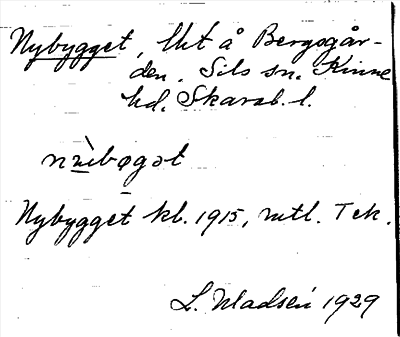 Nybygget, lht å Bergsgår-
den. Sils sn. Kinne
hd. Skarab. l.
Nybygget kl. 1915, mtl. Tek.
L. Madsén 1929